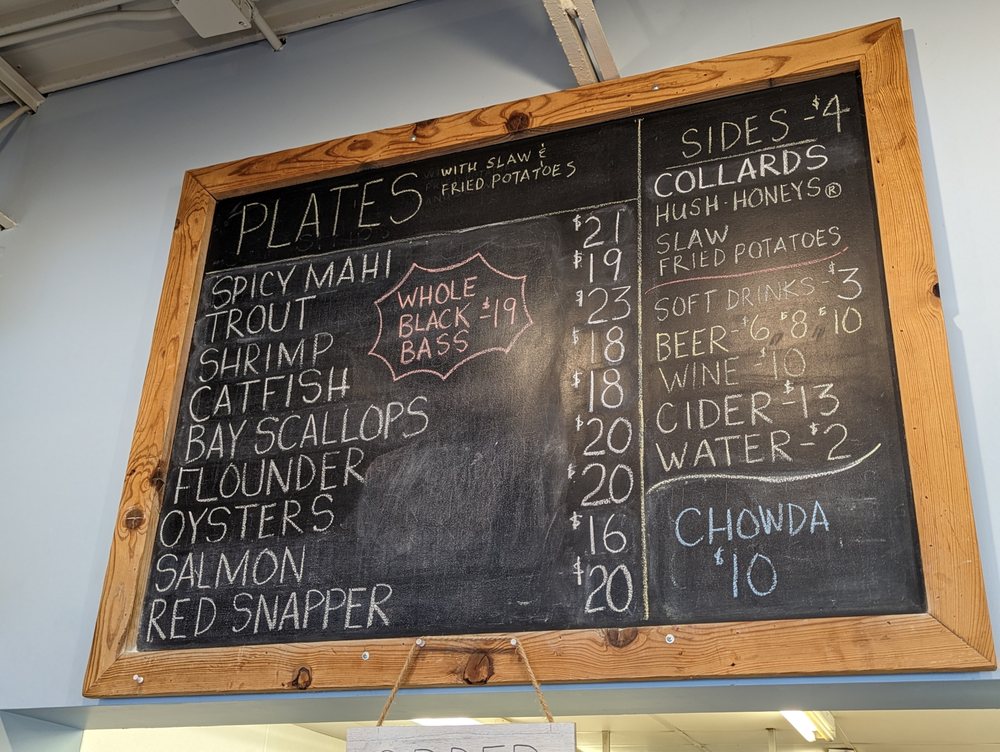 PLATES WITH SLAW &
FRIED POTATOES
SPICY MAHI $21
TROUT $19
SHRIMP $23
CATFISH $18
BAY SCALLOPS $18
FLOUNDER $20
OYSTERS $20
SALMON $16
RED SNAPPER $20
WHOLE
BLACK -$19
BASS
SIDES -$4
COLLARDS
HUSH-HONEYS®
SLAW
FRIED POTATOES
SOFT DRINKS -$3
BEER -$6, $8, $10
WINE -$10
CIDER -$13
WATER -$2
CHOWDA
$10
ORDER